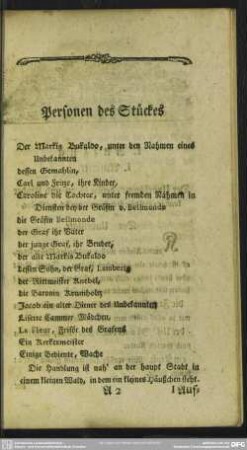 Personen des Stückes
Der Markis Bukaldo, unter den Nahmen eines
Unbekannten
dessen Gemahlin,
Carl und Fritze, ihre Kinder,
Caroline die Tochter, unter fremden Nahmen in
Diensten bey der Gräfin v. Bellmonde
die Gräfin Bellmonde
der Graf ihr Vater
der junge Graf, ihr Bruder,
der alte Markis Bukaldo
dessen Sohn, der Graf,
der Rittmeister Knebel,
die Baronin
Jacob ein alter Diener des Unbekannten
Cammer Mädchen,
La Fleur, Frisör des Grafens
Ein Kerkermeister
Einige Bediente, Wache
Die Handlung ist nah' an der haupt Stadt in
einem kleinen Wald, in dem ein kleines Häußchen steht.
A 2 1 Auf-